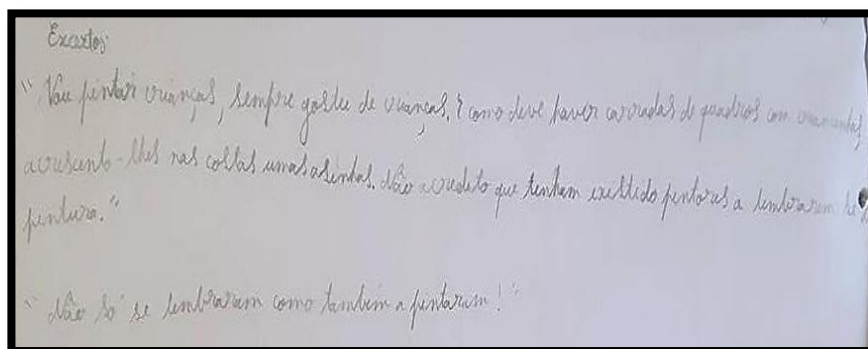 Excertos:
"Vou pintar crianças, sempre gostei de crianças. E como deve haver carradas de quadros com criancinhas
acrescento-lhes nas costas umas asinhas. Não acredito que tenham existido pintores a lembrarem
pintura."
"Não só se lembraram como também a pintaram!"